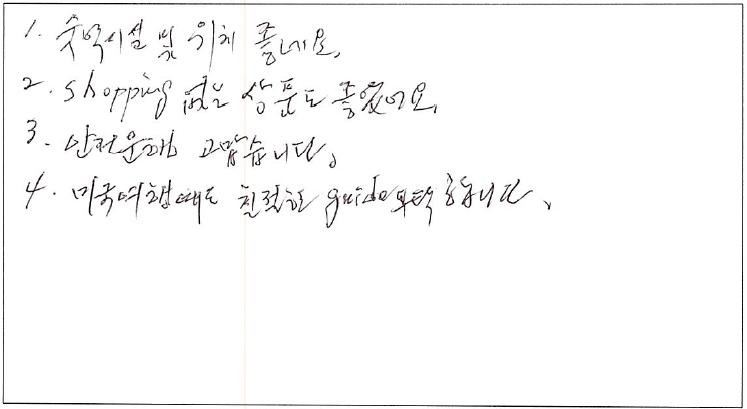 1. 숙박시설 및 위치 좋네요.
2. shopping 없는 상품도 좋았어요.
3. 안전운행 고맙습니다.
4. 미국여행때도 친절한 guide 부탁합니다.